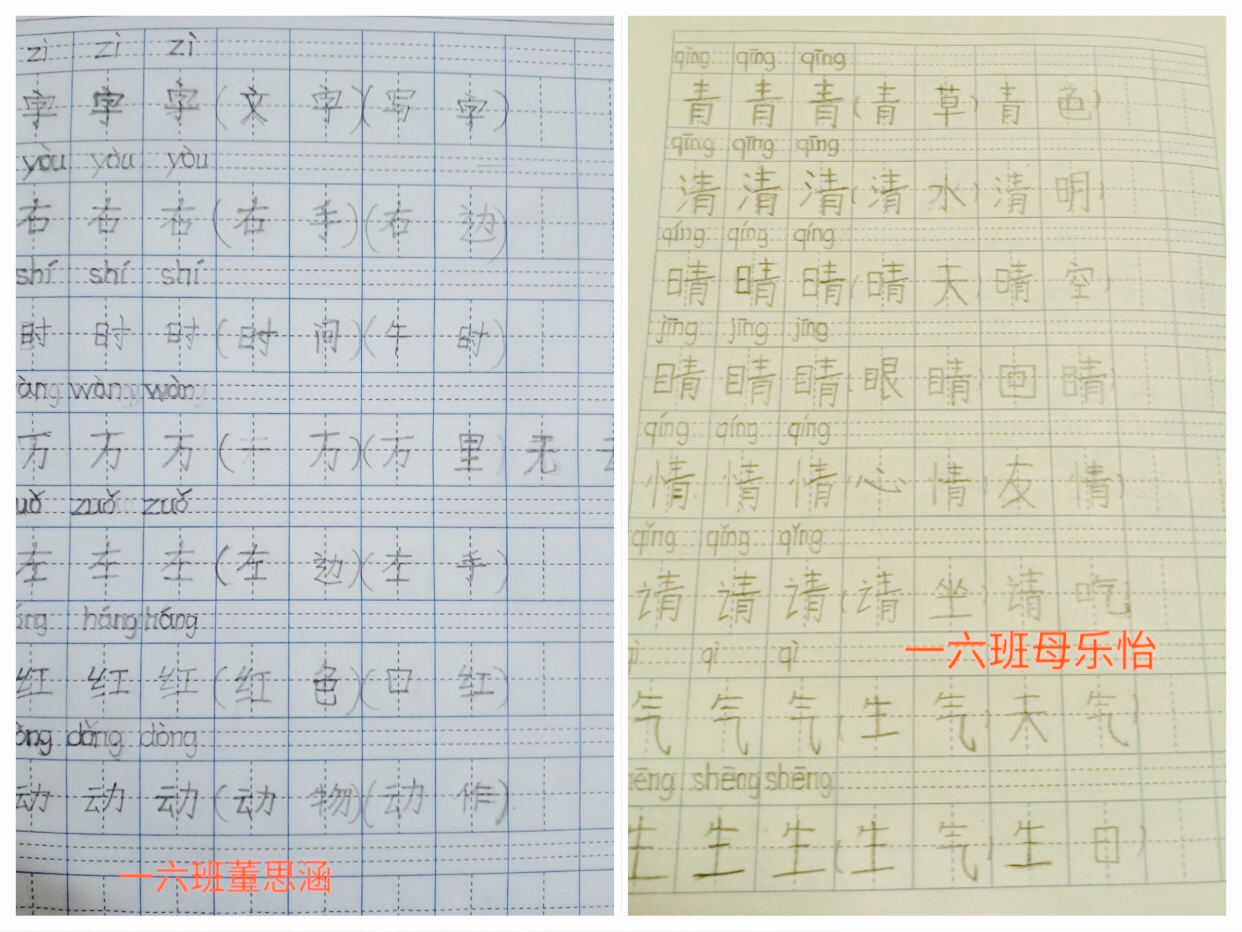 zì zì zì
字 字 字 (文 字)(写 字)
yòu yòu yòu
右 右 右 (右 手)(右 边)
shí shí shí
时 时 时 (时 间)(午 时)
àng wàn wàn
万 万 万 (千 万)(万 里) 无
uǒ zuǒ zuǒ
左 左 左 (左 边)(左 手)
áng háng háng
红 红 红 (红 色)(口 红)
òng dòng dòng
动 动 动 (动 物)(动 作)
一六班董思涵
qīng qīng qīng
青 青 青 (青 草) 青 色)
qīng qīng qīng
清 清 清 (清 水) 清 明)
qíng qíng qíng
晴 晴 晴 (晴 天) 晴 空)
jīng jīng jīng
睛 睛 睛 (眼 睛) 回 睛)
qíng qíng qíng
情 情 情 (心 情) 友 情)
qǐng qǐng qǐng
请 请 请 (请 坐) 请 吃)
qì qì qì
一六班母乐怡
气 气 气 (生 气) 天 气)
hēng shēng shēng
生 生 生 (生 气) 生 日)